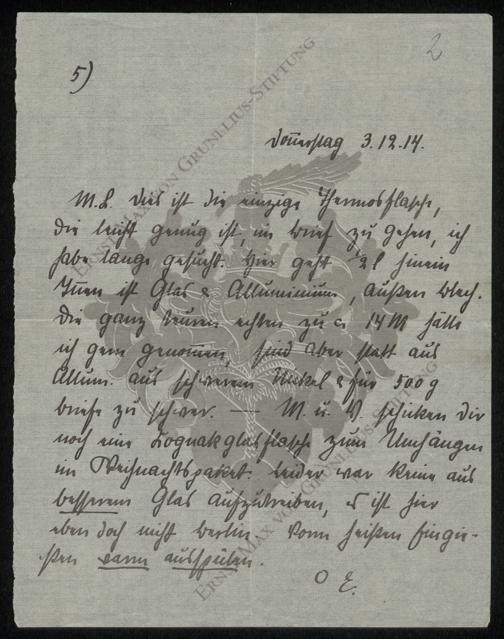 2
5)
Donnerstag 3.12.14.
M.L. Dies ist die einzige Thermosflasche,
die leicht genug ist, im Brief zu gehen, ich
habe lange gesucht. Hier geht ½ l hinein
Innen ist Glas & Alluminium, außen Blech.
Die ganz teuren echten zu 14 M hätte
ich gern genommen, sind aber statt aus
Allum. aus schwerem Nickel & für 500 g
Briefe zu schwer. — M. u. V. schicken Dir
noch eine Kognakglasflasche zum Umhängen
im Weihnachtspaket. Leider war keine aus
besserem Glas aufzutreiben, es ist hier
eben doch nicht Berlin. Vorm heißen Eingie-
ßen warm ausspülen.
O E.
ERNST MAX VON GRUNELIUS-STIFTUNG
ERNST MAX VON GRUNELIUS-STIFTUNG